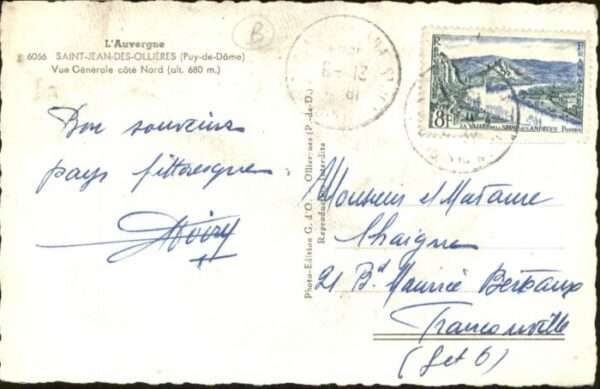 L'Auvergne
6066 SAINT-JEAN-DES-OLLIÈRES (Puy-de-Dôme)
Vue Générale côté Nord (alt. 680 m.)
Bon souvenir
pays pittoresque
Photo-Edition G. d'O. Ollier-ues (P.-de-D.)
Reproduction Interdite
B
8F
LA VALLÉE DE LA SEINE AUX ANDELYS POSTES
Monsieur et Madame
Chaigne
21 Bd Maurice Berteaux
Franconville
(S et O)